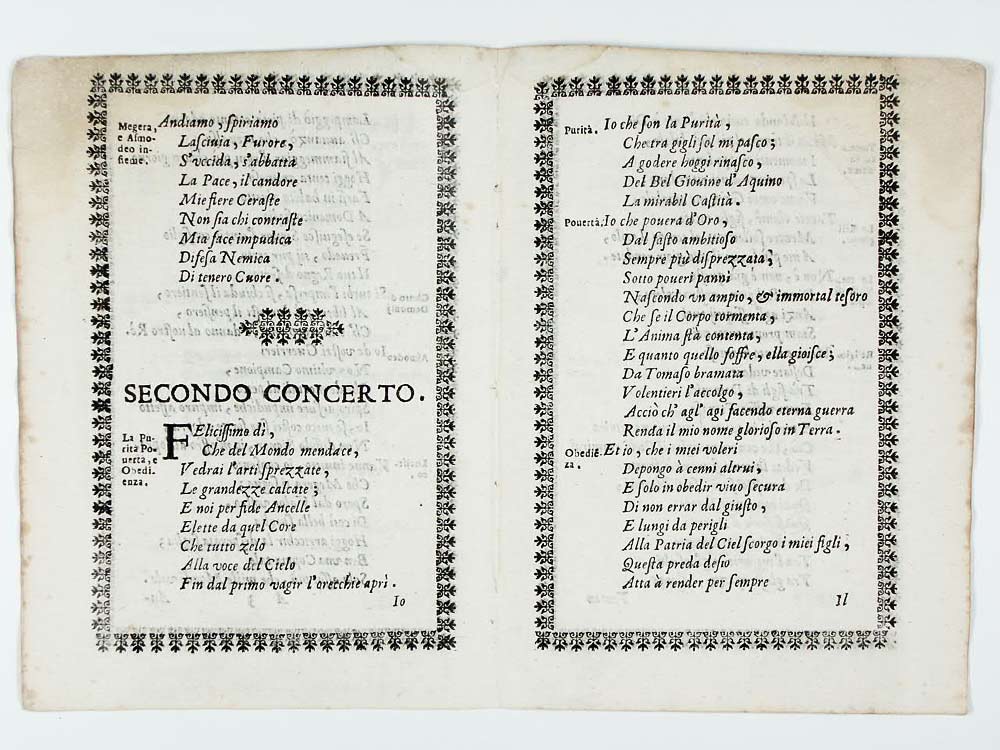 Megera,
e Asmo-
deo in-
sieme.
Andiamo, spiriamo
Lasciuia, Furore,
S'vccida, s'abbatta
La Pace, il candore
Mie fiere Ceraste
Non sia chi contraste
Mia face impudica
Difesa Nemica
Di tenero Cuore.
SECONDO CONCERTO.
La Pu-
rità Po-
uertà, e
Obedi-
enza.
FElicissimo dì,
Che del Mondo mendace,
Vedrai l'arti sprezzate,
Le grandezze calcate;
E noi per fide Ancelle
Elette da quel Core
Che tutto zelo
Alla voce del Cielo
Fin dal primo vagir l'orecchie aprì.
Io
Purità. Io che son la Purità,
Che tra gigli sol mi pasco;
A godere hoggi rinasco,
Del Bel Giouine d'Aquino
La mirabil Castità.
Pouertà. Io che pouera d'Oro,
Dal fasto ambitioso
Sempre più disprezzata;
Sotto poueri panni
Nascondo vn ampio, & immortal tesoro
Che se il Corpo tormenta,
L'Anima stà contenta,
E quanto quello soffre, ella gioisce;
Da Tomaso bramata
Volentieri l'accolgo,
Acciò ch' agl' agi facendo eterna guerra
Renda il mio nome glorioso in Terra.
Obediē-
za.
Et io, che i miei voleri
Depongo à cenni altrui,
E solo in obedir viuo secura
Di non errar dal giusto,
E lungi da perigli
Alla Patria del Ciel scorgo i miei figli,
Questa preda desio
Atta à render per sempre
Il